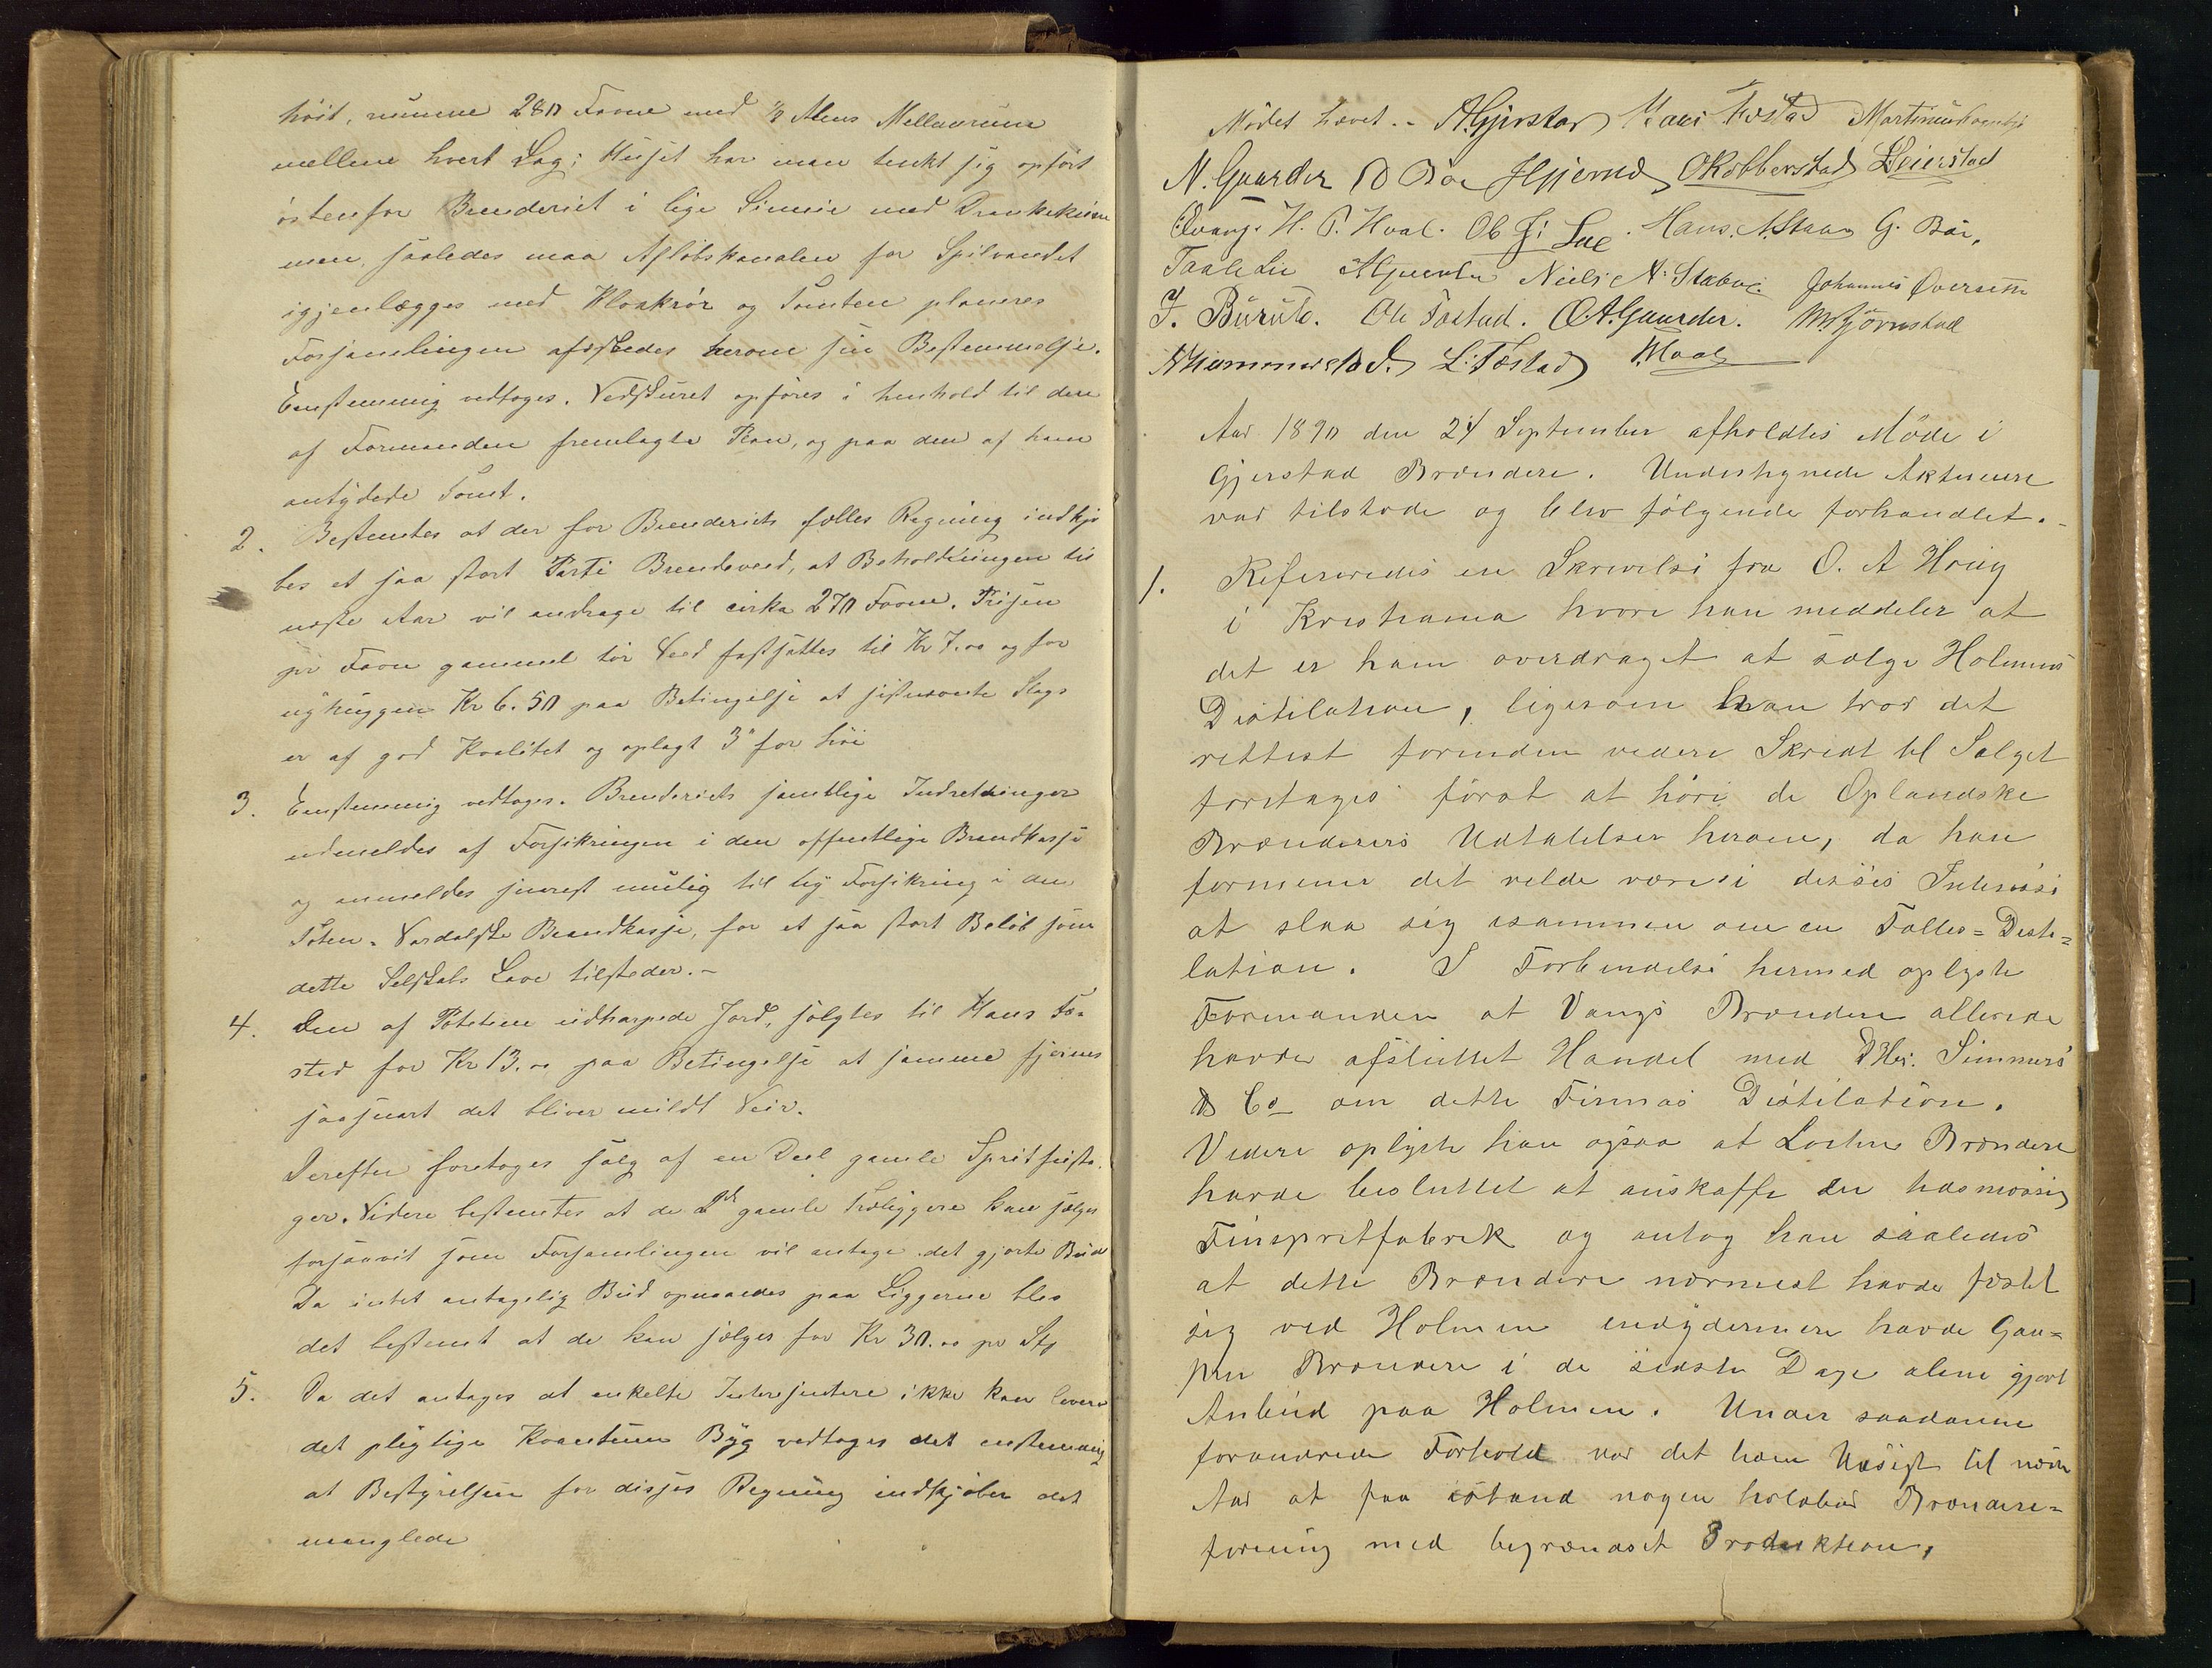 höit, rumme 280 Favne med ½ Alens Mellemrum
mellem hvert Lag; Huset har man tenkt sig opført
östenfor Brenderiet i lige Linnie med Drankekum
men, saaledes maa Aflöbskanalen for Spilvandet
igjenlægges med Kloakrör og Tomten planeres
Forsamlingen afæskedes herom sin Bestemmelse.
Enstemmig vedtoges. Vedskuret opføres i henhold til den
af Formanden fremlagte Plan, og paa den af ham
antydede Tomt.
2. Bestemtes at der for Brenderiets felles Regning indkjö
bes et saa stort Parti Brendeved, at Beholdningen til
neste Aar vil andrage til cirka 270 Favne. Prisen
pr Favn gammel tör Ved fastsattes til Kr 7.00 og for
nyhuggen Kr 6.50 paa Betingelse at sistnevnte Slags
er af god Kvalitet og oplagt 3" for höi
3. Enstemmig vedtoges. Brenderiets samtlige Indretninger
udmeldes af Forsikringen i den offentlige Brandkasse
og anmeldes snarest mulig til ny Forsikring i den
Toten-Vardalske Brandkasse, for et saa stort Belöb som
dette Selskabs Love tilsteder.-
4. Den af Poteterne udharpede Jord, solgtes til Hans Fö-
stad for Kr 13.00 paa Betingelse at samme fjernes
saasnart det bliver mildt Veir.
Derefter foretoges salg af en Deel gamle Spritfusta-
ger. Videre bestemtes at de 2de gamle Træliggere kan selges
forsaavit som Forsamlingen vil antage det gjorte Bud
Da intet antagelig Bud opnaaedes paa Liggerne blev
det bestemt at de kan selges for Kr 30.00 pr Stk
5. Da det antages at enkelte Interesentere ikke kan levere
det pligtige Kvantum Byg vedtoges det enstemmig
at Bestyrelsen for disses Regning indkjöber det
manglede
Mödet hævet.- A Gjerstad Hans Fostad Martinius
N. Gaarder O Böe Hgjerud OKobberstad LSeierstad
Evang. H. P. Hval. Ob Ji Lue. Hans. N. Staa G. Böe,
Taale Lie Niels A. Stabo. Johannes Overseth
J. Burul. Ole Fostad. O.A. Gaarder. M Björnstad
NHammerstad. L: Fostad Hval
Aar 1890 den 24 September afholdtes Möde i
Gjerstad Brænderi. Undertegnede Aktionere
var tilstede og blev fölgende forhandlet.-
1. Refereredes en Skrivelse fra O. A Höieg
i Kristiania hvori han meddeler at
det er ham overdraget at sælge Holmens
Distilation, ligesom han tror det
rettest forinden videre Skridt til Salget
foretages förat at höre de Oplandske
Brænderiers Udtalelser herom, da han
formener det vilde være i disses Interesse
at slaa sig isammen om en Fælles-Desti-
lation. I Forbindelse hermed oplyste
Formanden at Vangs Brænderi allerede
havde afsluttet Handel med DHer. Simmers
& Co om dette Firmas Distilation.
Videre oplyste han ogsaa at Loiten Brænderi
havde besluttet at anskaffe en tidsmæssig
Finspritfabrik og antog han saaledes
at dette Brænderi nærmest havde fæstet
sig ved Holmen endydermere havde Gau-
pen Brænderi i de sidste Dage alene gjort
Anbud paa Holmen. Under saadanne
forandrede Forhold var det liden Udsigt til næste
Aar at faa istand nogen holdbar Brænderi-
forening med begrændset Produktion,